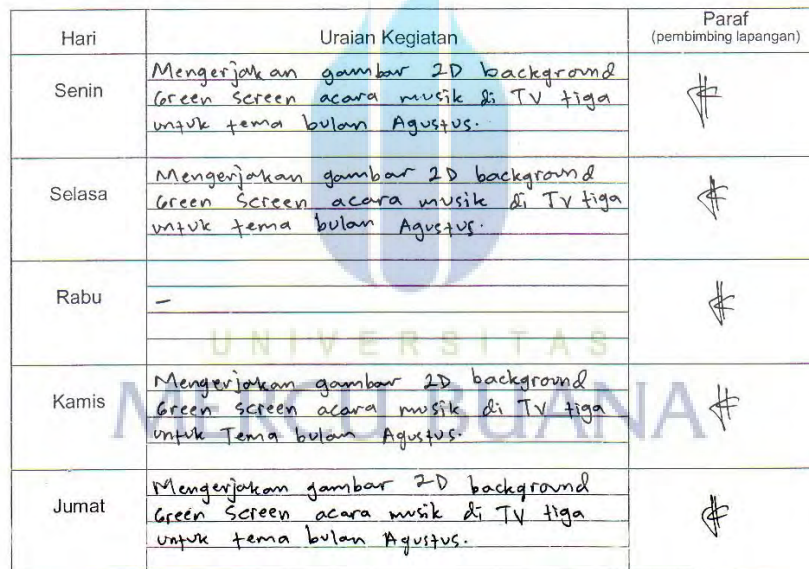 Hari Uraian Kegiatan Paraf
(pembimbing lapangan)
Senin
Mengerjakan gambar 2D background
Green Screen acara musik di TV tiga
untuk tema bulan Agustus.
Selasa
Mengerjakan gambar 2D background
Green Screen acara musik di TV tiga
untuk tema bulan Agustus.
Rabu
-
UNIVERSITAS
MERCU BUANA
Kamis
Mengerjakan gambar 2D background
Green Screen acara musik di TV tiga
untuk Tema bulan Agustus.
Jumat
Mengerjakan gambar 2D background
Green Screen acara musik di TV tiga
untuk tema bulan Agustus.